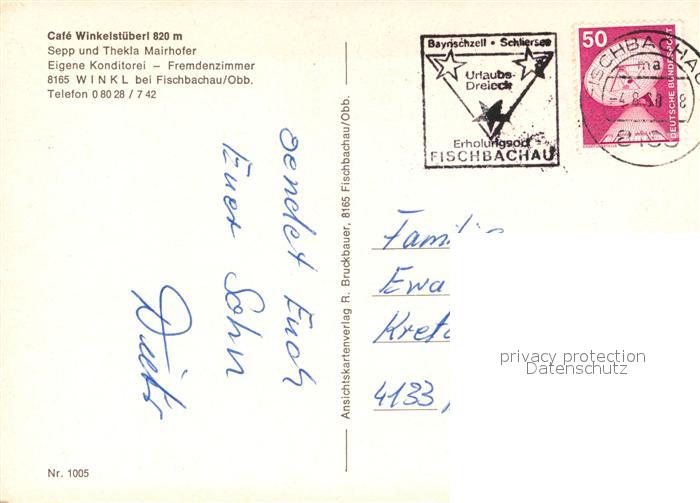 Café Winkelstüberl 820 m
Sepp und Thekla Mairhofer
Eigene Konditorei – Fremdenzimmer
8165 WINKL bei Fischbachau/Obb.
Telefon 0 80 28 / 7 42
sendet Euch
Euer Sohn
Nr. 1005
Ansichtskartenverlag R. Bruckbauer, 8165 Fischbachau/Obb.
Bayrischzell • Schliersee
Urlaubs-
Dreieck
Erholungsort
FISCHBACHAU
50
DEUTSCHE BUNDESPOST
FISCHBACHAU
ma
Ewa
4133,
privacy protection
Datenschutz